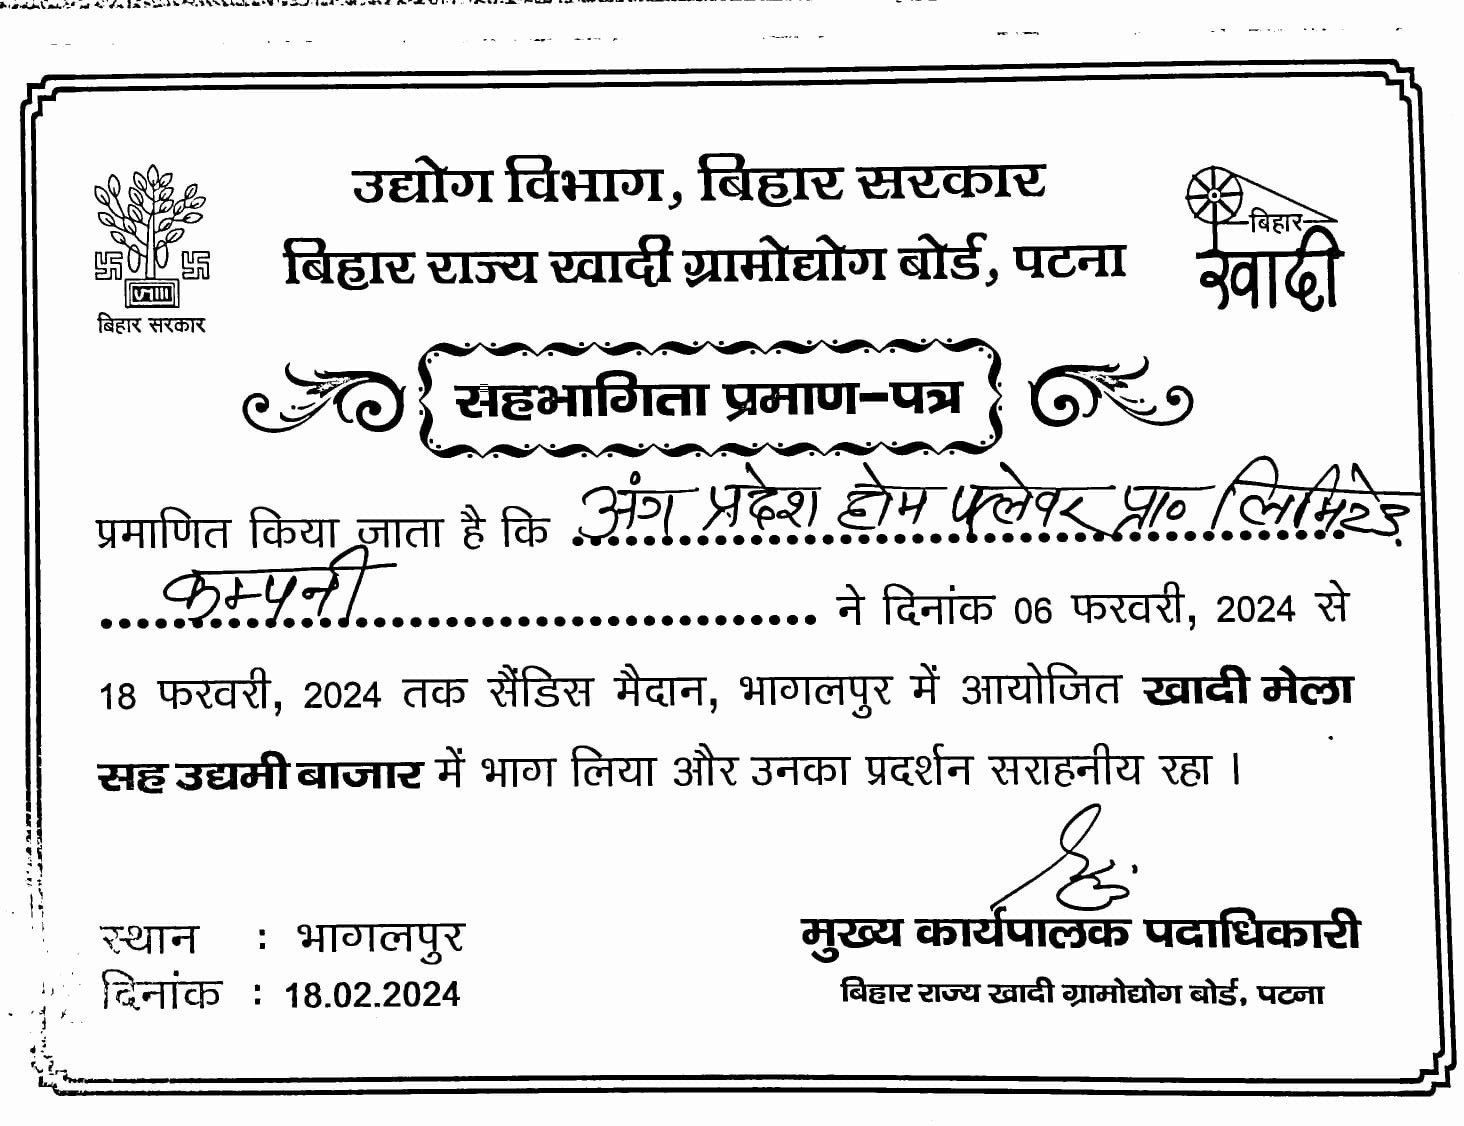 उद्योग विभाग, बिहार सरकार
बिहार राज्य खादी ग्रामोद्योग बोर्ड, पटना
बिहार सरकार
बिहार
खादी
सहभागिता प्रमाण-पत्र
प्रमाणित किया जाता है कि अंग प्रदेश होम फ्लेवर प्रा० लिमिटेड
कम्पनी ने दिनांक 06 फरवरी, 2024 से
18 फरवरी, 2024 तक सैंडिस मैदान, भागलपुर में आयोजित खादी मेला
सह उद्यमी बाजार में भाग लिया और उनका प्रदर्शन सराहनीय रहा ।
स्थान : भागलपुर
दिनांक : 18.02.2024
मुख्य कार्यपालक पदाधिकारी
बिहार राज्य खादी ग्रामोद्योग बोर्ड, पटना